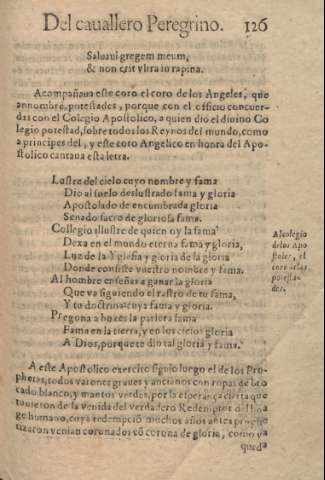 Del cauallero Peregrino. 126
Saluaui gregem meum,
& non erit vltra in rapina.
Acompañaua este coro el coro de los Angeles, que
an nombre, potestades, porque con el officio concuer-
das con el Colegio Apostolico, a quien dio el diuino Co
legio potestad, sobre todos los Reynos del mundo, como
a principes del, y este coro Angelico en honra del Apo-
stolico cantaua esta letra.
Lustre del cielo cuyo nombre y fama
Dio al suelo deslustrado fama y gloria
Apostolado de encumbrada gloria
Senado sacro de gloriosa fama.
Collegio illustre de quien oy la fama
Dexa en el mundo eterna fama y gloria,
Luz de la Yglesia y gloria de la gloria
Donde consiste vuestro nombre y fama.
Al hombre enseñas a ganar la gloria
Que va siguiendo el rastro de tu fama,
Y tu doctrina tuya fama y gloria.
Pregona a bozes la parlera fama
Fama en la tierra, y en los cielos gloria
A Dios, porque te dio tal gloria y fama.
Al colegio
de los Apo
stoles, el
coro de las
potesta-
des.
A este Apostolico exercito siguio luego el de los Pro-
phetas, todos varones graues y ancianos con ropas de bro
cado blanco, y mantos verdes, por la esperança cierta que
tuuieron de la venida del verdadero Redemptor del lina
ge humano, cuya redempciõ muchos años antes prophe
tizaron venian coronados cõ corona de gloria, como ya
queda